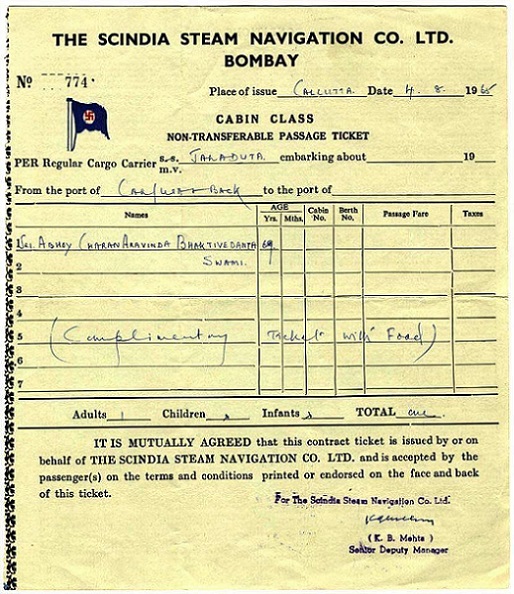 THE SCINDIA STEAM NAVIGATION CO. LTD.
BOMBAY
No 774
Place of issue CALCUTTA Date 4. 8. 1965
CABIN CLASS
NON-TRANSFERABLE PASSAGE TICKET
PER Regular Cargo Carrier s.s. m.v. JALADUTA embarking about 19
From the port of BACK to the port of
Names AGE Yrs. Mths. Cabin No. Berth No. Passage Fare Taxes
1 Sri ABHOY CHARAN ARAVINDA BHAKTIVEDANTA 69
2 SWAMI.
3
4
5 (Complimentary Ticket with Food)
6
7
Adults 1 Children Infants TOTAL one.
IT IS MUTUALLY AGREED that this contract ticket is issued by or on
behalf of THE SCINDIA STEAM NAVIGATION CO. LTD. and is accepted by the
passenger(s) on the terms and conditions printed or endorsed on the face and back
of this ticket.
For The Scindia Steam Navigation Co. Ltd.
(K. B. Mehta)
Senior Deputy Manager